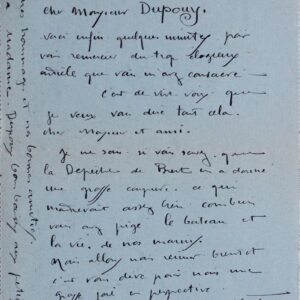 cher Monsieur Dupouy.
voici enfin quelques minutes pour
vous remercier du trop élogieux
article que vous m'avez consacré
c'est de vive voix que
je veux vous dire tout cela.
cher Monsieur et ami.
je ne sais si vous savez que
la Dépêche de Brest en a donné
une grosse coupure. ce qui
assez bien combien
vous avez pigé le bateau et
la vie de nos marins.
Mais allons nous revenir bientôt
c'est vous dire pour nous une
grosse joie en perspective
mes hommages et nos bonnes amitiés
à madame. Dupouy bonbons aux petits